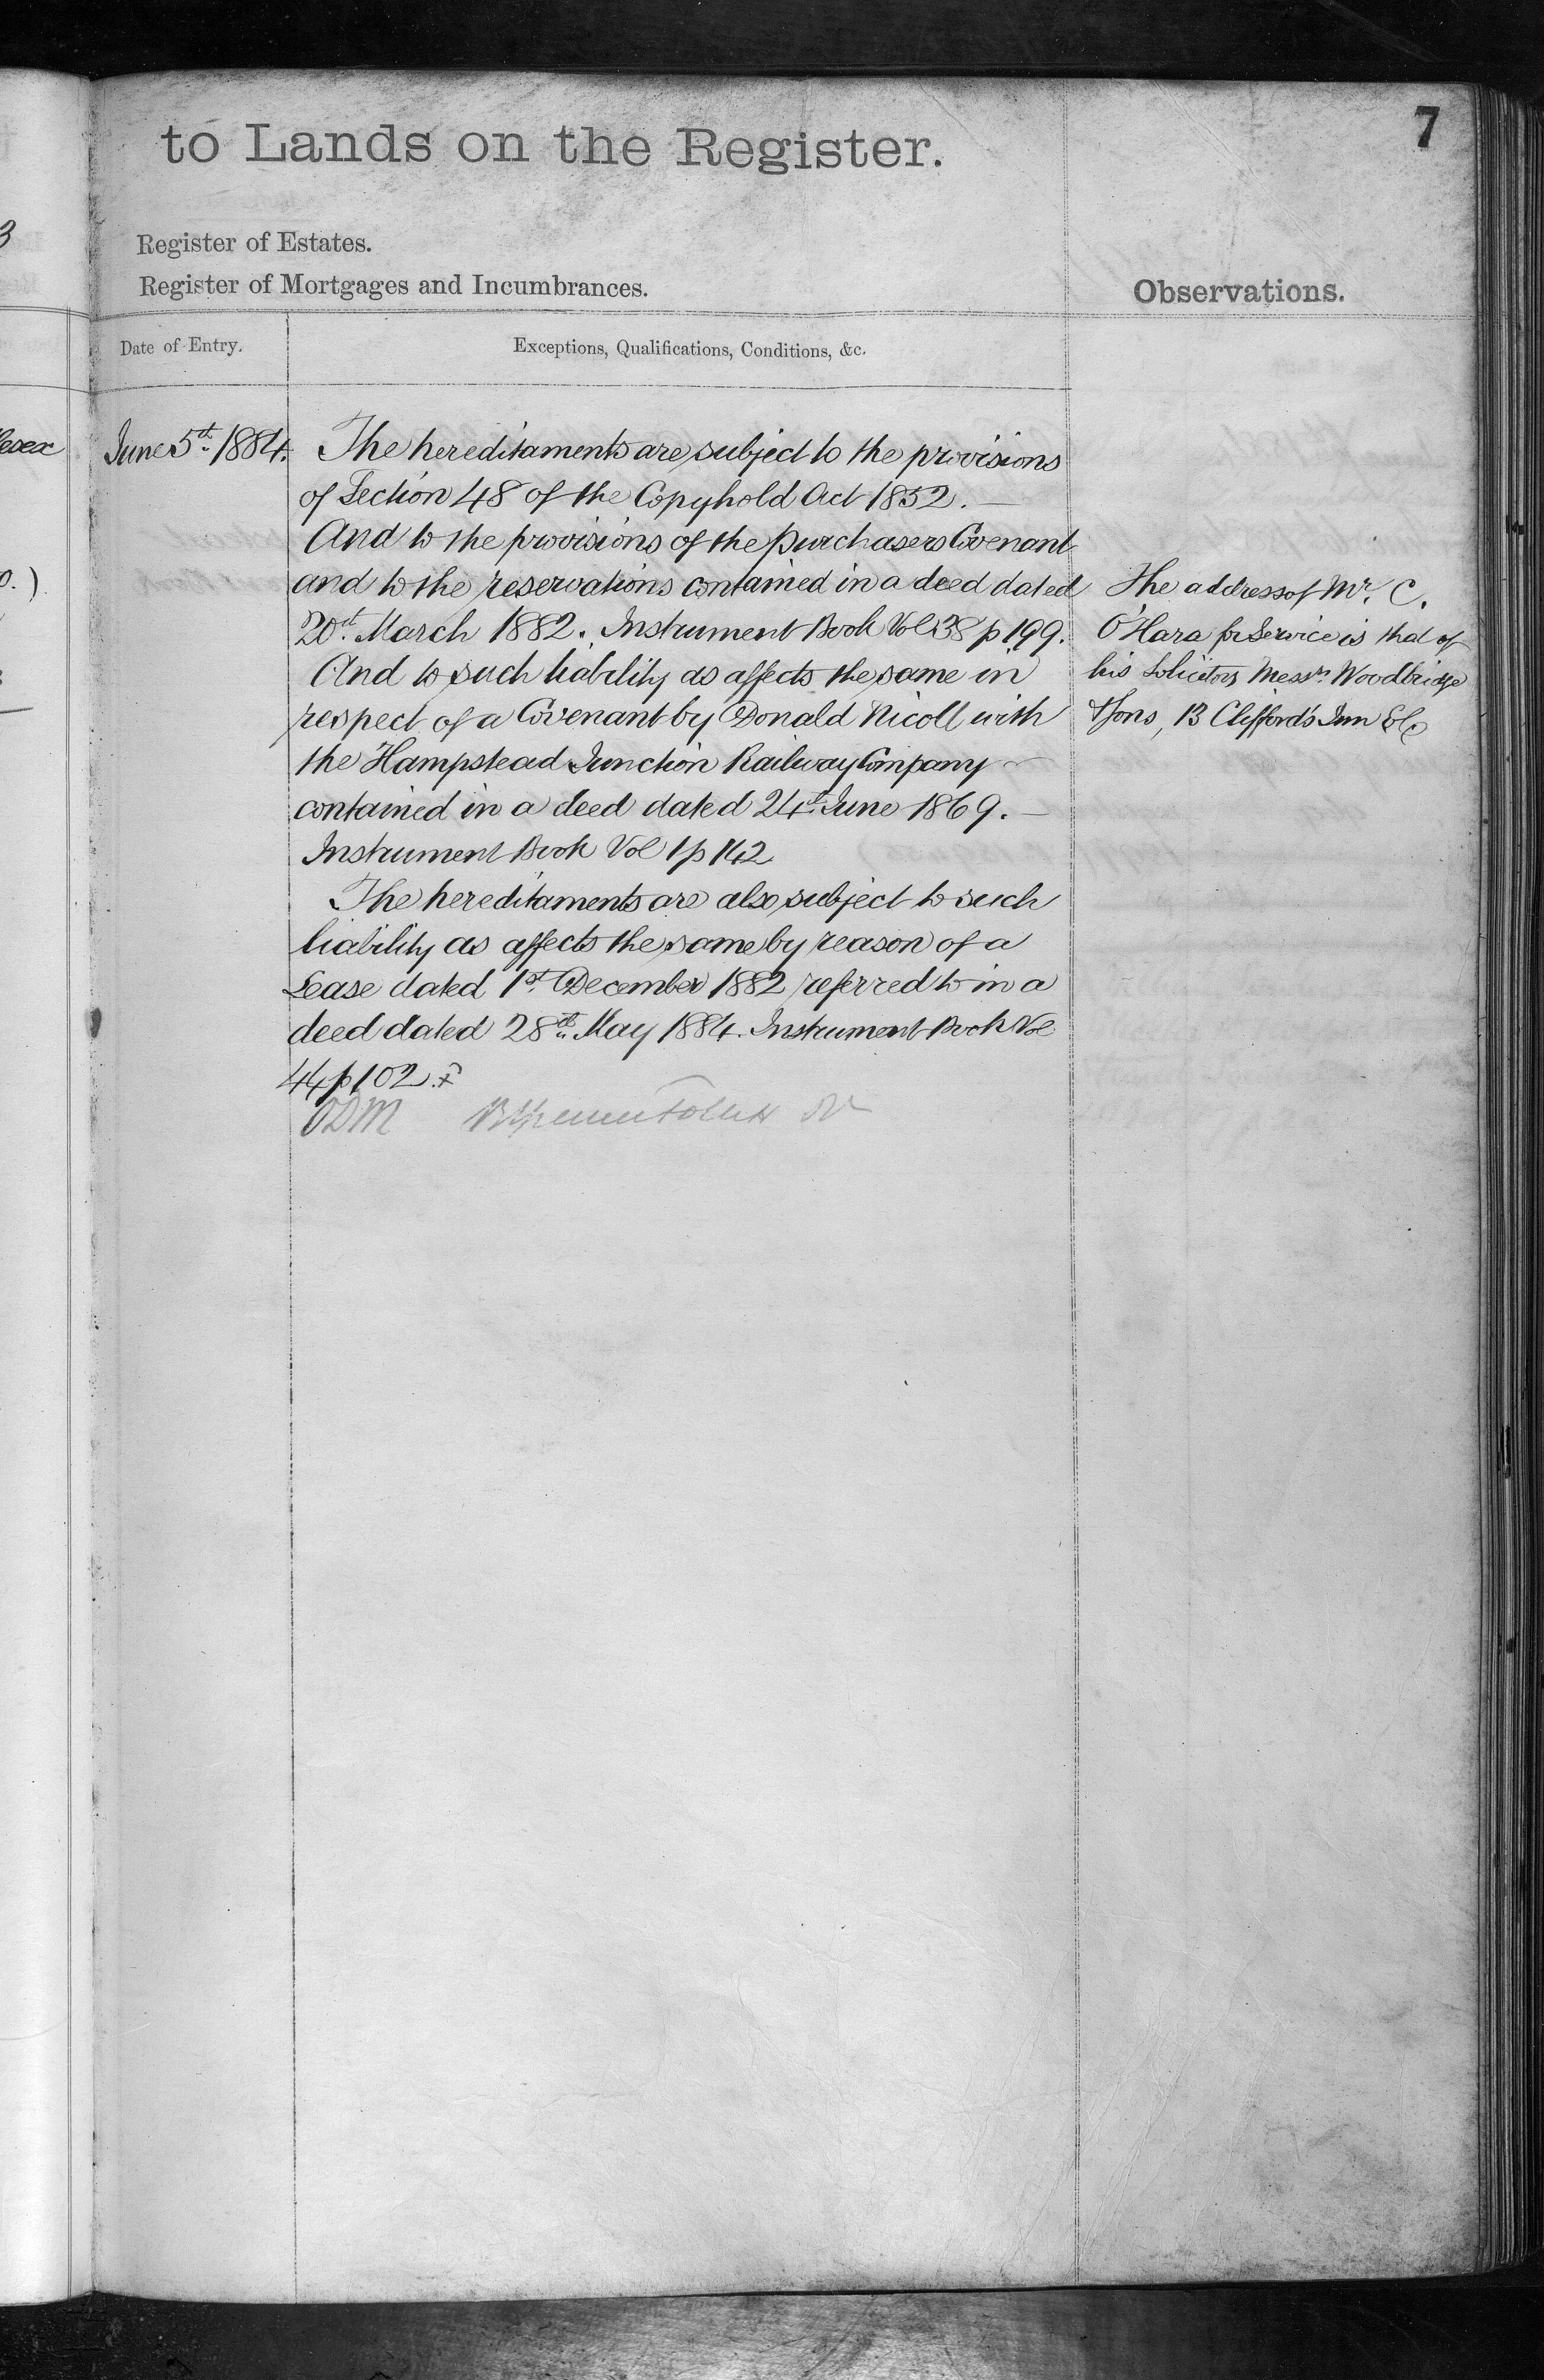 7
to Lands on the Register.
Register of Estates.
Register of Mortgages and Incumbrances.
Observations.
Date of Entry.
Exceptions, Qualifications, Conditions, &c.
June 5th 1884.
The hereditaments are subject to the provisions
of Section 48 of the Copyhold Act 1852. —
And to the provisions of the purchasers Covenant
and to the reservations contained in a deed dated
20th March 1882. Instrument Book Vol 38 p 199.
And to such liability as affects the same in
respect of a Covenant by Donald Nicoll with
the Hampstead Junction Railway Company
contained in a deed dated 24th June 1869. —
Instrument Book Vol 1 p 142
The hereditaments are also subject to such
liability as affects the same by reason of a
Lease dated 1st December 1882 referred to in a
deed dated 28th May 1884. Instrument Book Vol
44 p 102.
The address of Mr. C.
O'Hara for Service is that of
his Solicitors Messrs Woodbridge
& Sons, 13 Clifford's Inn EC
3
esex
o.)